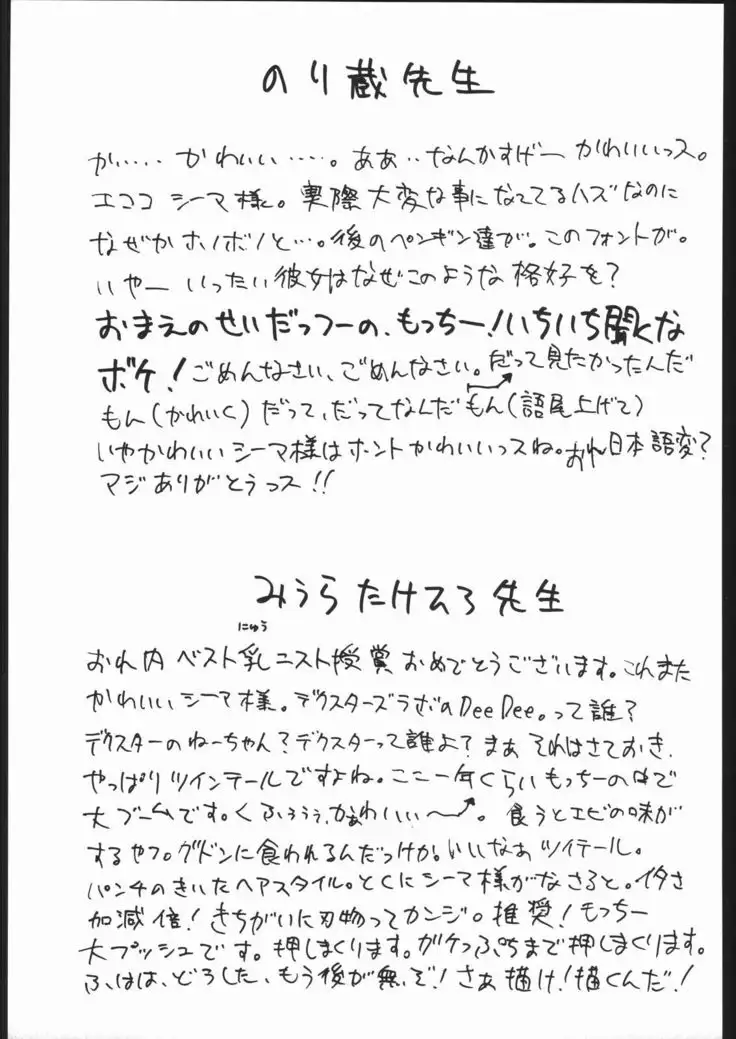 のり蔵先生
か‥‥‥かわいい‥‥‥。ああ‥なんかすげーかわいいっス。
エココシーマ様。実際大変な事になってるハズなのに
なぜかホノボノと‥‥。後のペンギン達が。このフォントが。
いやーいったい彼女はなぜこのような格好を?
おまえのせいだっつーの、もっちー!いちいち聞くな
ボケ!ごめんなさい、ごめんなさい。だって見たかったんだ
もん(かわいく)だって、だってなんだもん(語尾上げて)
いやかわいいシーマ様はホントかわいいっスね。おれ日本語変?
マジありがとうっス!!
みうらたけひろ先生
にゅう
おれ内ベスト乳ニスト授賞おめでとうございます。これまた
かわいいシーマ様。デクスターズラボのDeeDee。って誰?
デクスターのねーちゃん?デクスターって誰よ?まぁそれはさておき、
やっぱりツインテールですよね。ここ一年くらいもっちーの中で
大ブームです。くふぅぅぅ、かぁわいいい〜。食うとエビの味が
するヤツ。グドンに食われるんだっけか。いいなぁツイテール。
パンチのきいたヘアスタイル。とくにシーマ様がなさると。イタさ
加減倍!きちがいに刃物ってカンジ。推奨!もっちー
大プッシュです。押しまくります。ガケっぷちまで押しまくります。
ふはは、どうした、もう後が無いぞ!さぁ描け!描くんだ!